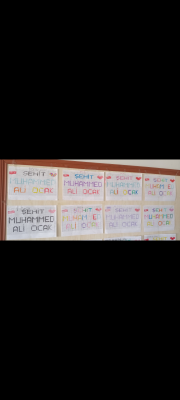 ŞEHİT
MUHAMMED
ALİ OCAK
ŞEHİT
MUHAMMED
ALİ OCAK
ŞEHİT
MUHAMMED
ALİ OCAK
ŞEHİT
MUHAMMED
ALİ OCAK
ŞEHİT
MUHAMMED
ALİ OCAK
ŞEHİT
MUHAMMED
ALİ OCAK
ŞEHİT
MUHAMMED
ALİ OCAK
ŞEHİT
MUHAMMED
ALİ OCAK